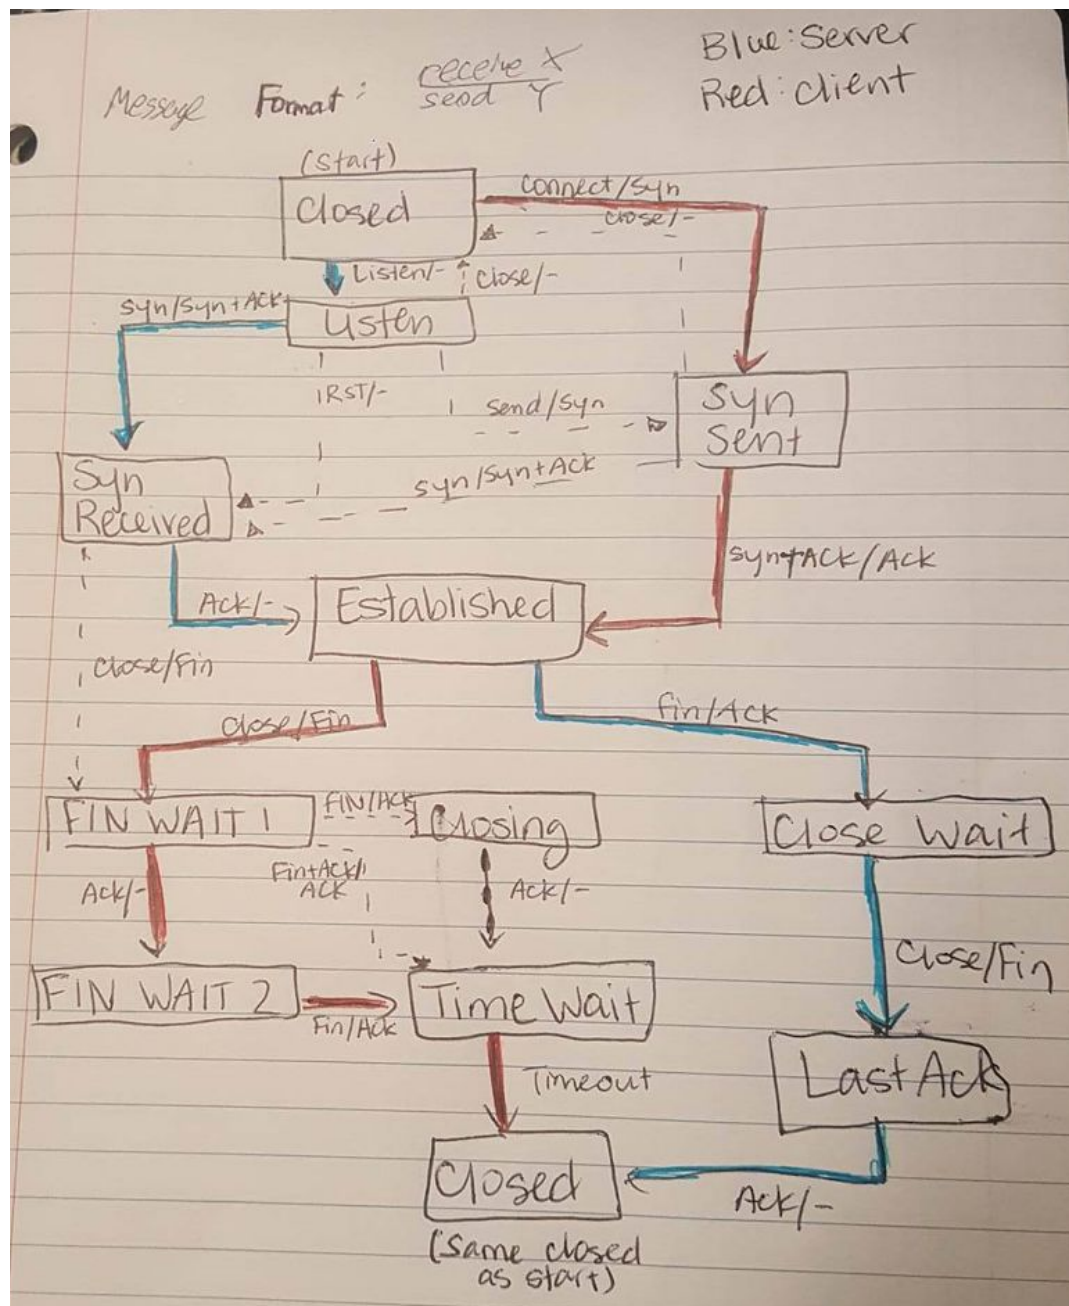 Blue: Server
Red: client
Message Format: receive X
send Y
(Start)
Closed
Connect/Syn
Close/-
Listen/-
Close/-
Syn/Syn+ACK
Listen
RST/-
Send/Syn
Syn
Sent
Syn/Syn+ACK
Syn
Received
Syn+ACK/Ack
Ack/-
Established
Close/Fin
Close/Fin
Fin/Ack
FIN WAIT 1
FIN/ACK
Closing
Close Wait
Fin+ACK/
ACK
Ack/-
Ack/-
Close/Fin
FIN WAIT 2
Fin/Ack
Time Wait
Timeout
Last Ack
Closed
Ack/-
(Same closed
as start)